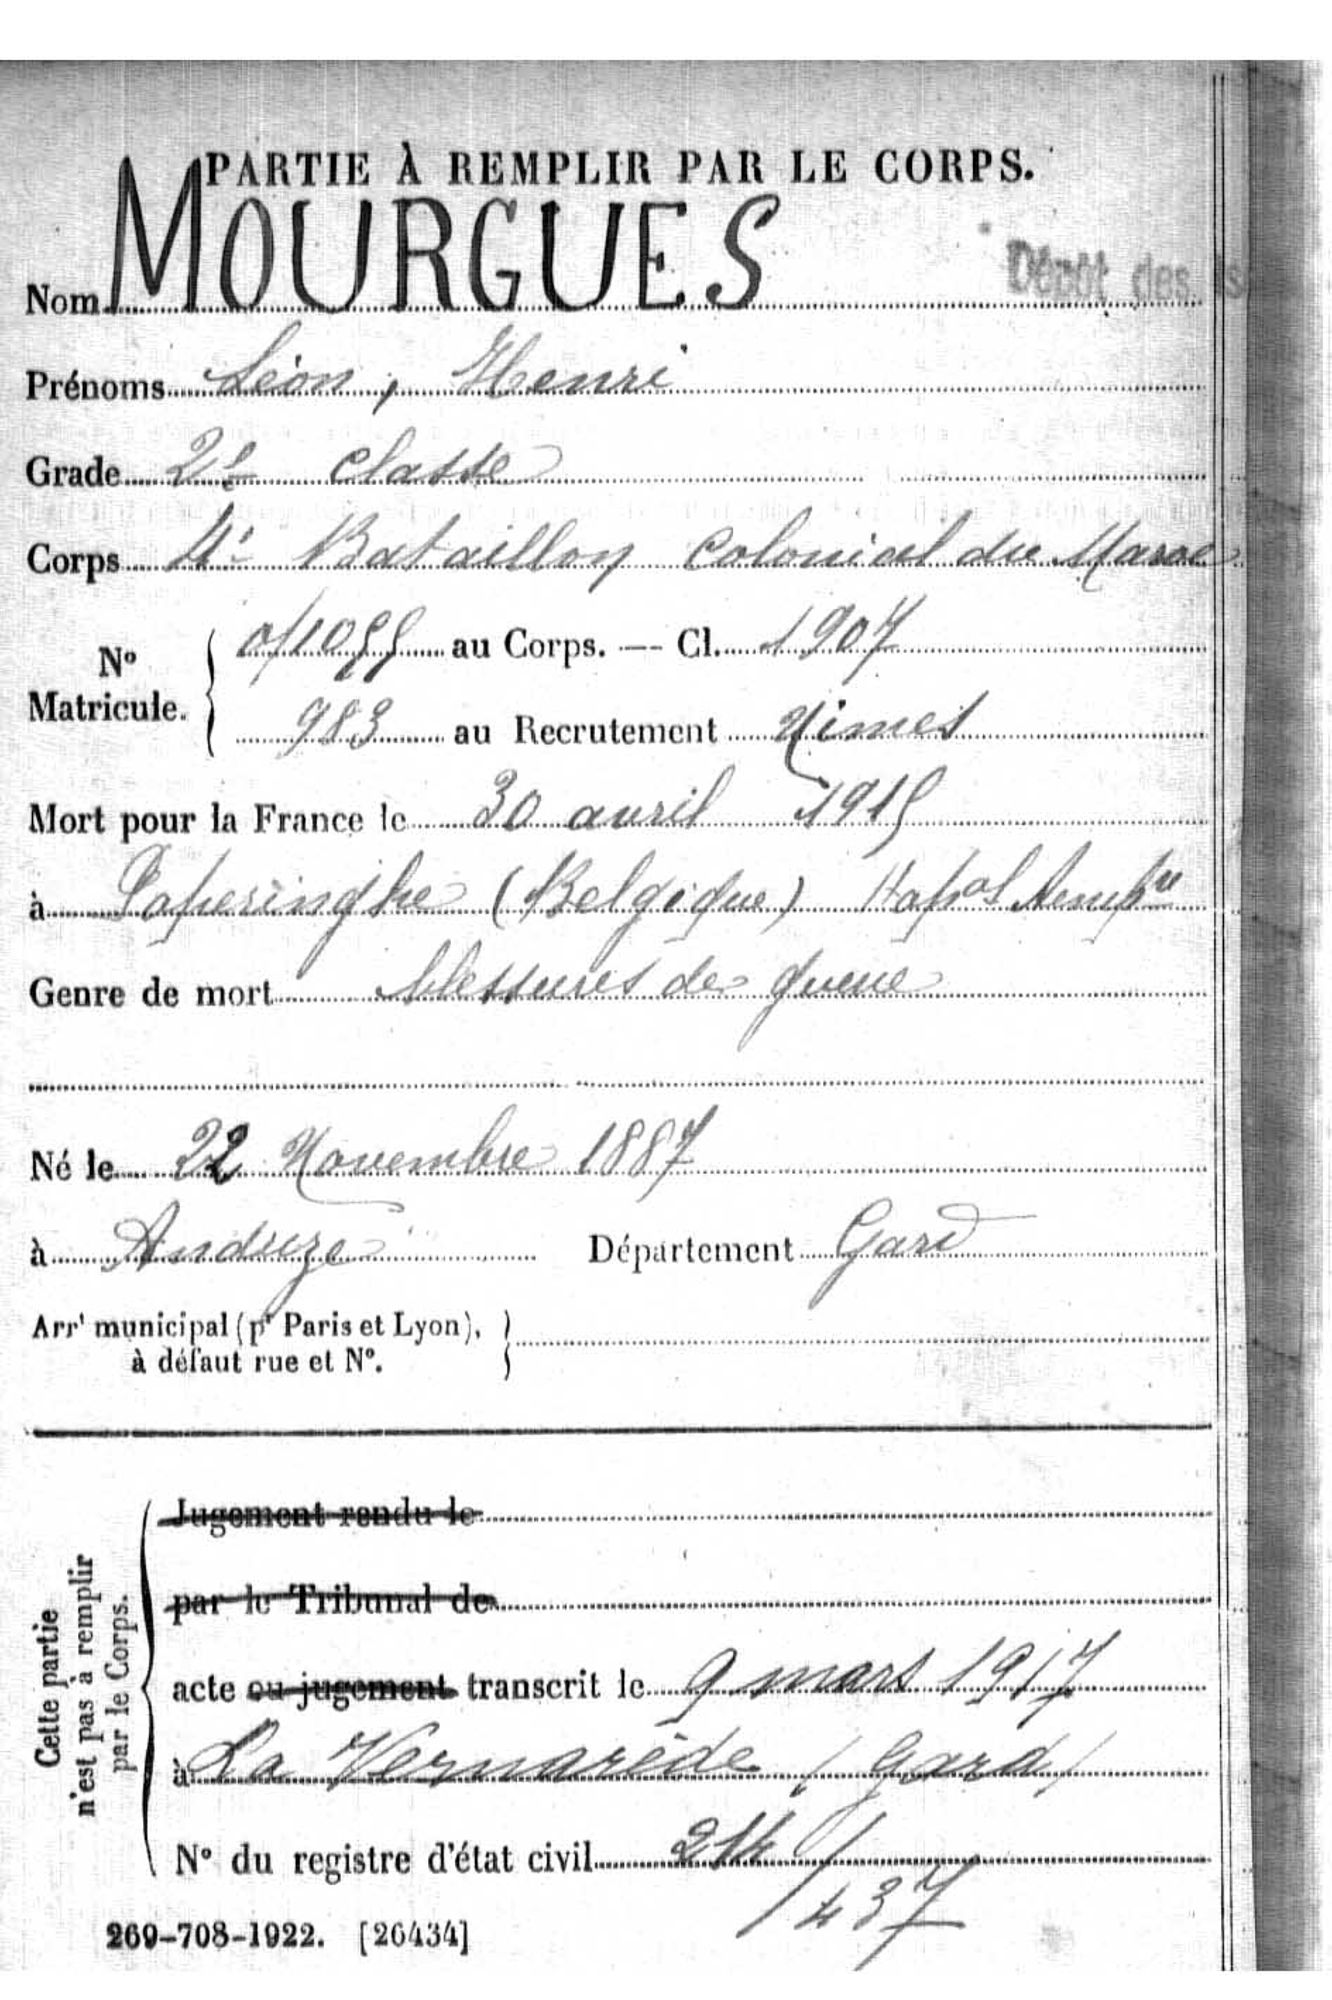 PARTIE À REMPLIR PAR LE CORPS.
Dépôt des
Nom MOURGUES
Prénoms Léon, Henri
Grade 2e classe
Corps 4e Bataillon Colonial du Maroc
No Matricule. { 0/1055 au Corps. — Cl. 1907
983 au Recrutement Nimes
Mort pour la France le 30 avril 1915
à Poperinghe (Belgique) Hopal Tempre
Genre de mort blessures de guerre
Né le 22 Novembre 1887
à Anduze Département Gard
Arrt municipal (pr Paris et Lyon), }
à défaut rue et No.
Cette partie
n'est pas à remplir
par le Corps.
Jugement rendu le
par le Tribunal de
acte ou jugement transcrit le 9 mars 1917
à La Vernarède (Gard)
No du registre d'état civil 214/
437
269-708-1922. [26434]